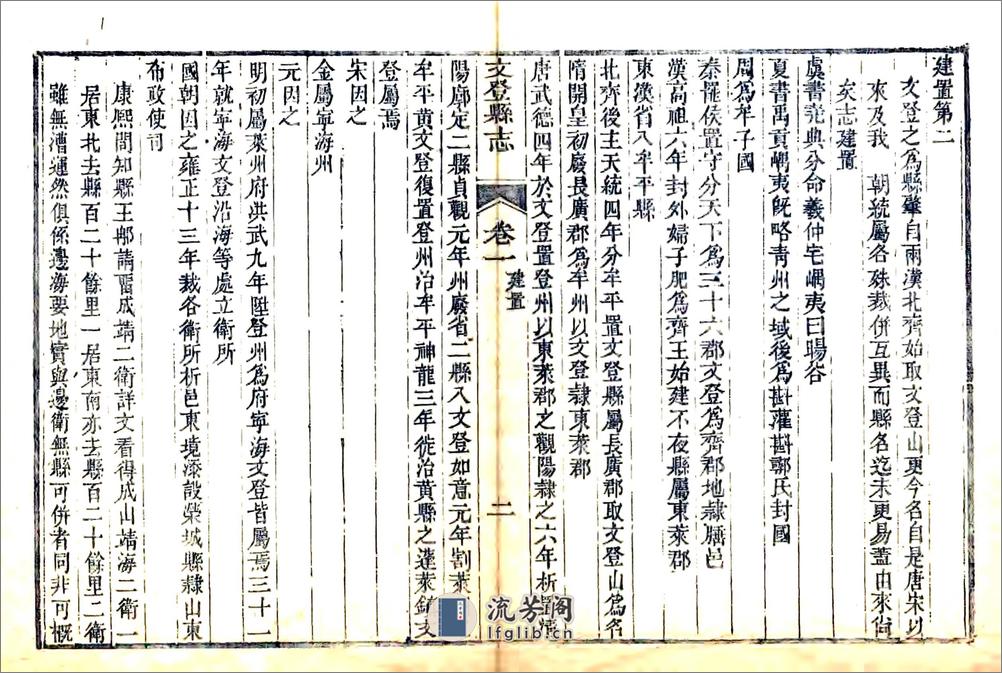 建置第二
文登之為縣肇自兩漢北齊始取文登山更今名自是唐宋以
來及我 朝統屬各殊裁併互異而縣名迄未更易蓋由來尚
矣志建置
虞書堯典分命羲仲宅嵎夷曰暘谷
夏書禹貢嵎夷既略青州之域後為斟灌斟鄩氏封國
周為牟子國
秦罷侯置守分天下為三十六郡文登為齊郡地隸腄邑
漢高祖六年封外婦子肥為齊王始建不夜縣屬東萊郡
東漢省入牟平縣
北齊後主天統四年分牟平置文登縣屬長廣郡取文登山為名
隋開皇初廢長廣郡為牟州以文登隸東萊郡
唐武德四年於文登置登州以東萊郡之觀陽隸之六年析置清
文登縣志
卷一
建置
二
陽廓定二縣貞觀元年州廢省二縣入文登如意元年割萊
牟平黃文登復置登州治牟平神龍三年徙治黃縣之蓬萊鎮文
登屬焉
宋因之
金屬寧海州
元因之
明初屬萊州府洪武九年陞登州為府寧海文登皆屬焉三十一
年就寧海文登沿海等處立衛所
國朝因之雍正十三年裁各衛所析邑東境添設榮城縣隸山東
布政使司
康熙間知縣王郕請留成靖二衛詳文看得成山靖海二衛一
居東北去縣百二十餘里一居東南亦去縣百二十餘里二衛
雖無漕運然俱係邊海要地實與邊衛無縣可併者同非可概
流芳閣
lfglib.cn